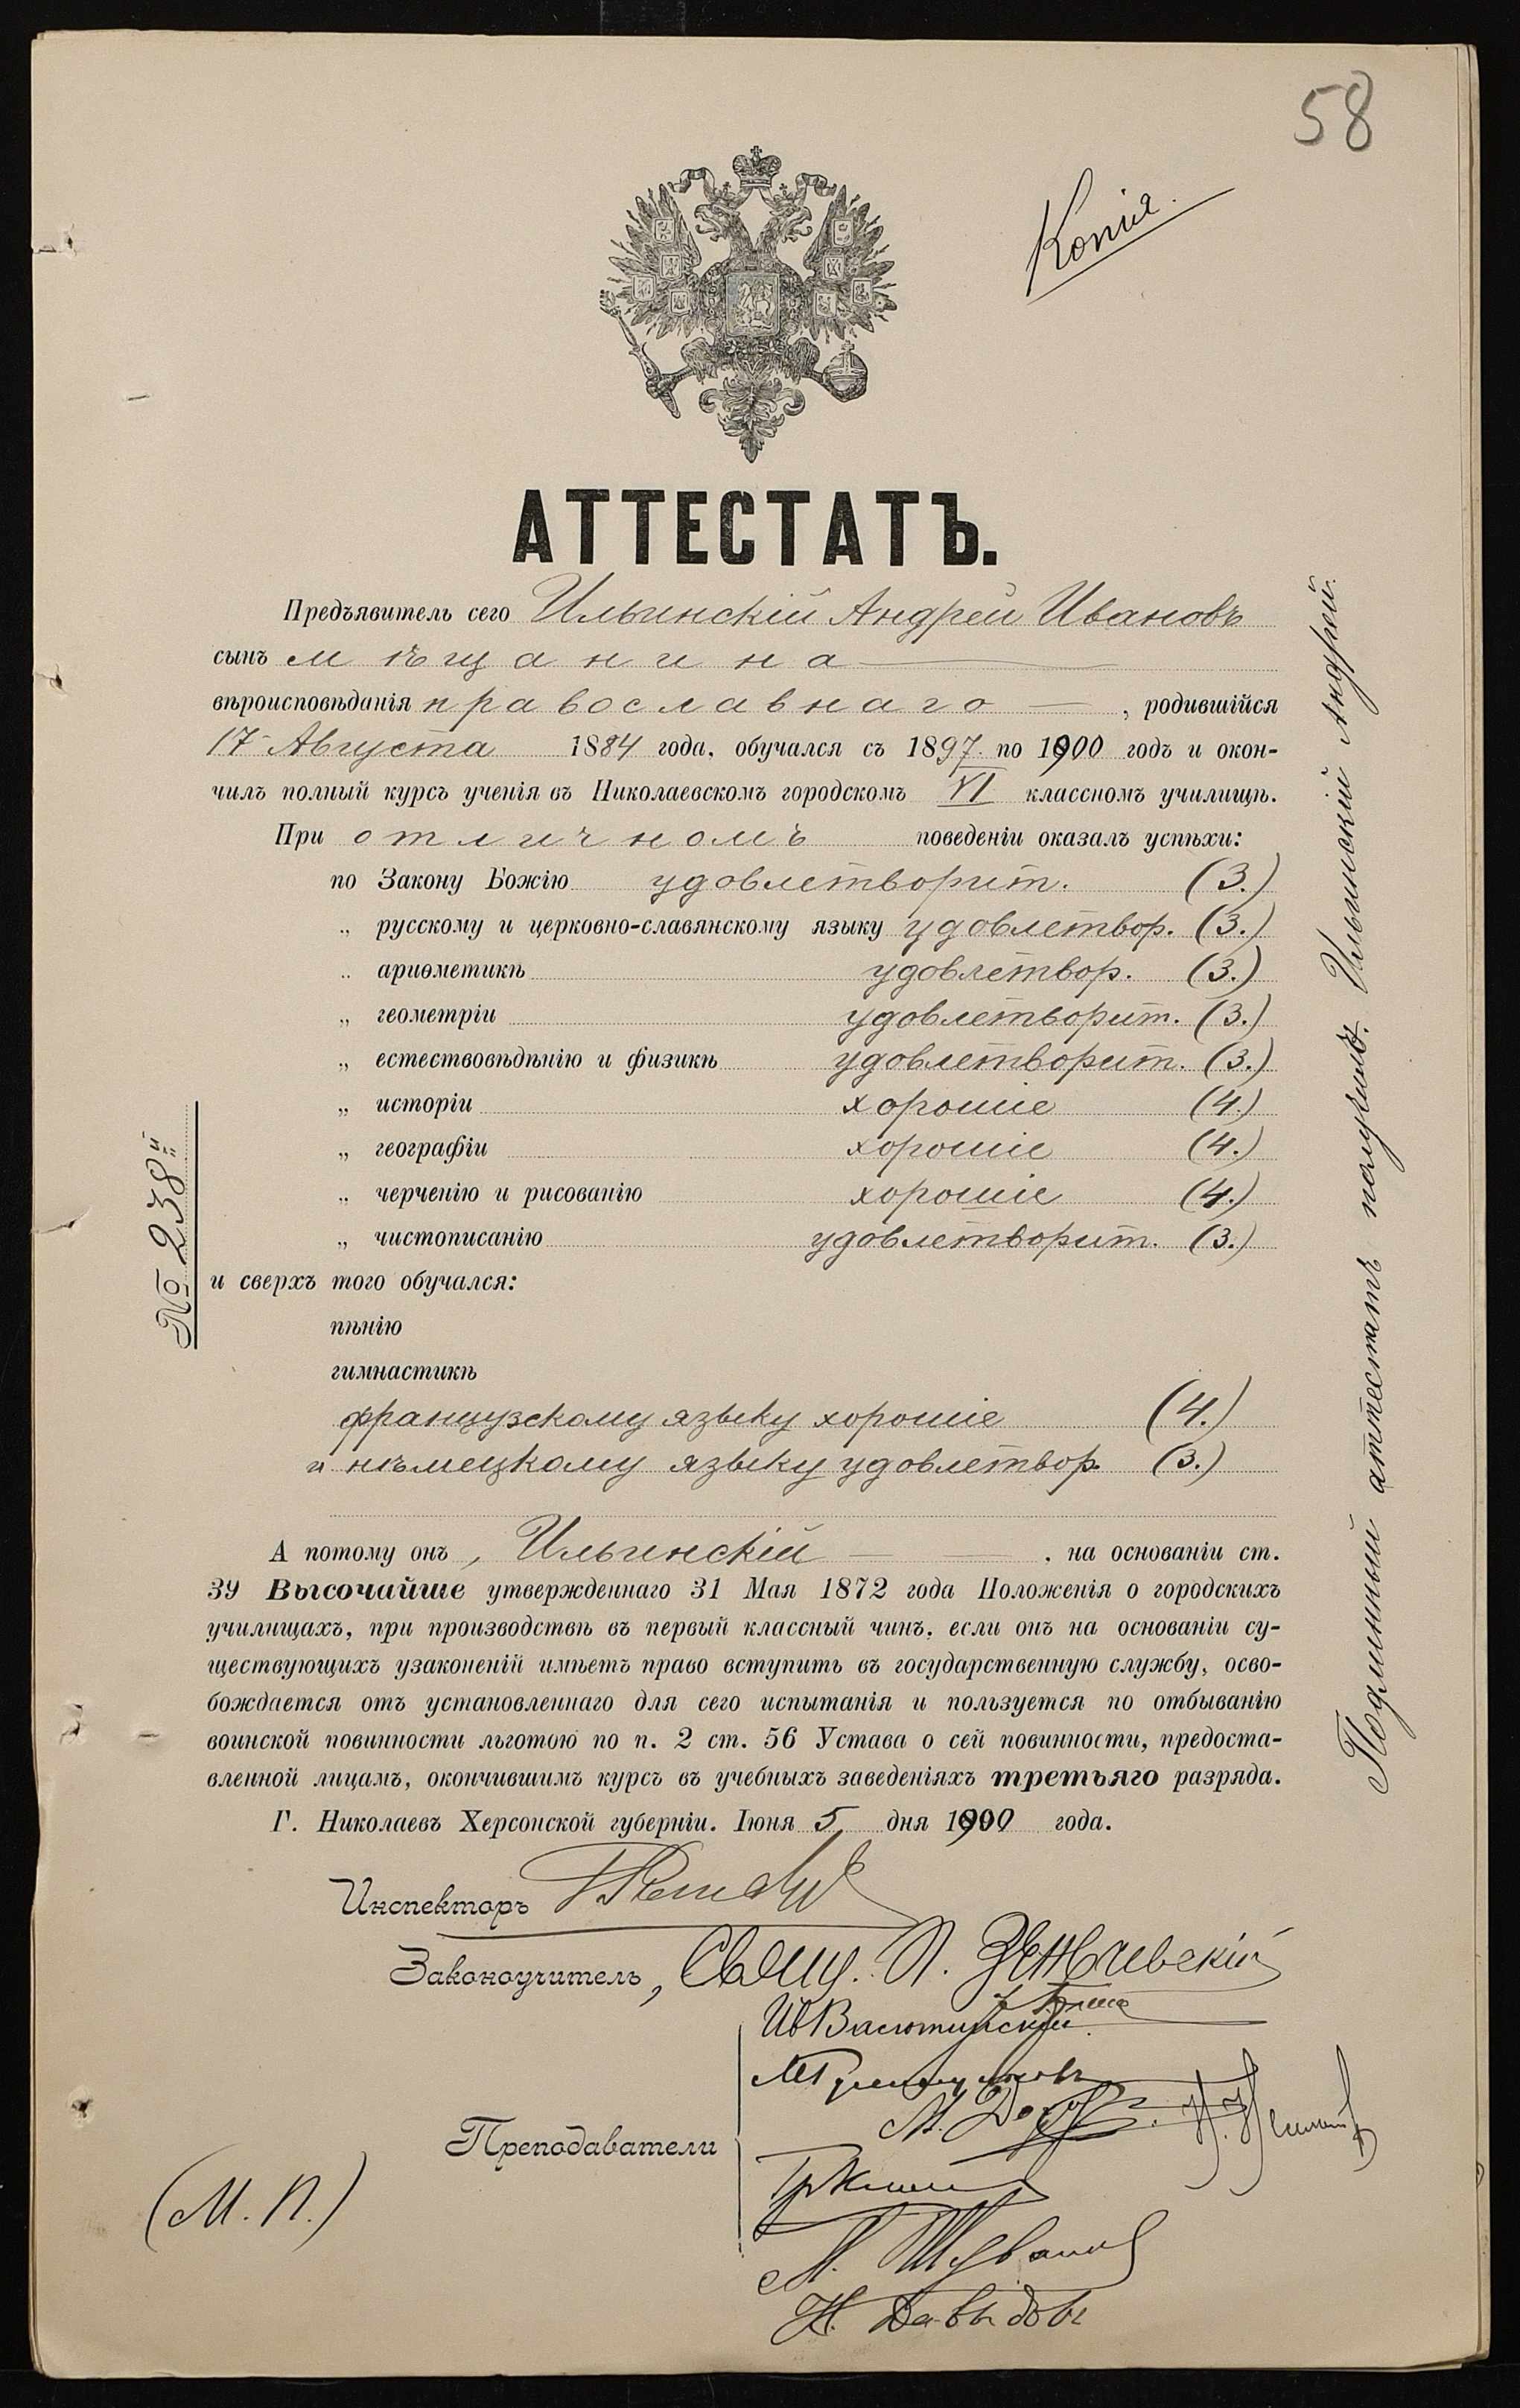 58
Копія.
АТТЕСТАТЪ.
Предъявитель сего Ильинскій Андрей Ивановъ
сынъ мѣщанина
вѣроисповѣданія православнаго —, родившійся
17 Августа 1884 года, обучался съ 1897 по 1900 годъ и окон-
чилъ полный курсъ ученія въ Николаевскомъ городскомъ VI классномъ училищѣ.
При отличномъ поведеніи оказалъ успѣхи:
по Закону Божію удовлетворит. (3.)
„ русскому и церковно-славянскому языку удовлетвор. (3.)
„ ариѳметикѣ удовлетвор. (3.)
„ геометріи удовлетворит. (3.)
„ естествовѣдѣнію и физикѣ удовлетворит. (3.)
„ исторіи хорошіе (4.)
„ географіи хорошіе (4.)
„ черченію и рисованію хорошіе (4.)
„ чистописанію удовлетворит. (3.)
и сверхъ того обучался:
пѣнію
гимнастикѣ
французскому языку хорошіе (4.)
и нѣмецкому языку удовлетвор. (3.)
А потому онъ, Ильинскій — — , на основаніи ст.
39 Высочайше утвержденнаго 31 Мая 1872 года Положенія о городскихъ
училищахъ, при производствѣ въ первый классный чинъ, если онъ на основаніи су-
ществующихъ узаконеній имѣетъ право вступить въ государственную службу, осво-
бождается отъ установленнаго для сего испытанія и пользуется по отбыванію
воинской повинности льготою по п. 2 ст. 56 Устава о сей повинности, предоста-
вленной лицамъ, окончившимъ курсъ въ учебныхъ заведеніяхъ третьяго разряда.
Г. Николаевъ Херсонской губерніи. Іюня 5 дня 1900 года.
Инспекторъ
Законоучитель, Свящ. П.
Ив Васютинскій
Преподаватели
(М. П.)
Н. Давыдовъ
№ 238й
Подлинный аттестатъ получилъ. Ильинскій Андрей.